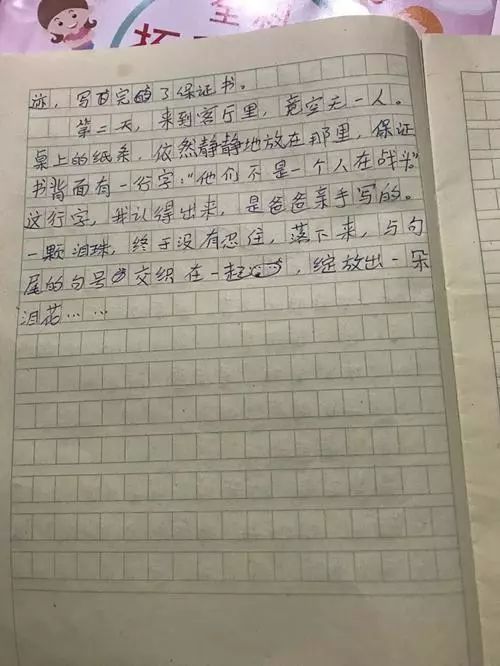 迹，写完了保证书。
第二天，来到客厅里，竟空无一人。
桌上的纸条，依然静静地放在那里，保证
书背面有一行字："他们不是一个人在战斗"
这行字，我认得出来，是爸爸亲手写的。
一颗泪珠，终于没有忍住，落下来，与句
尾的句号交织在一起，绽放出一朵
泪花……